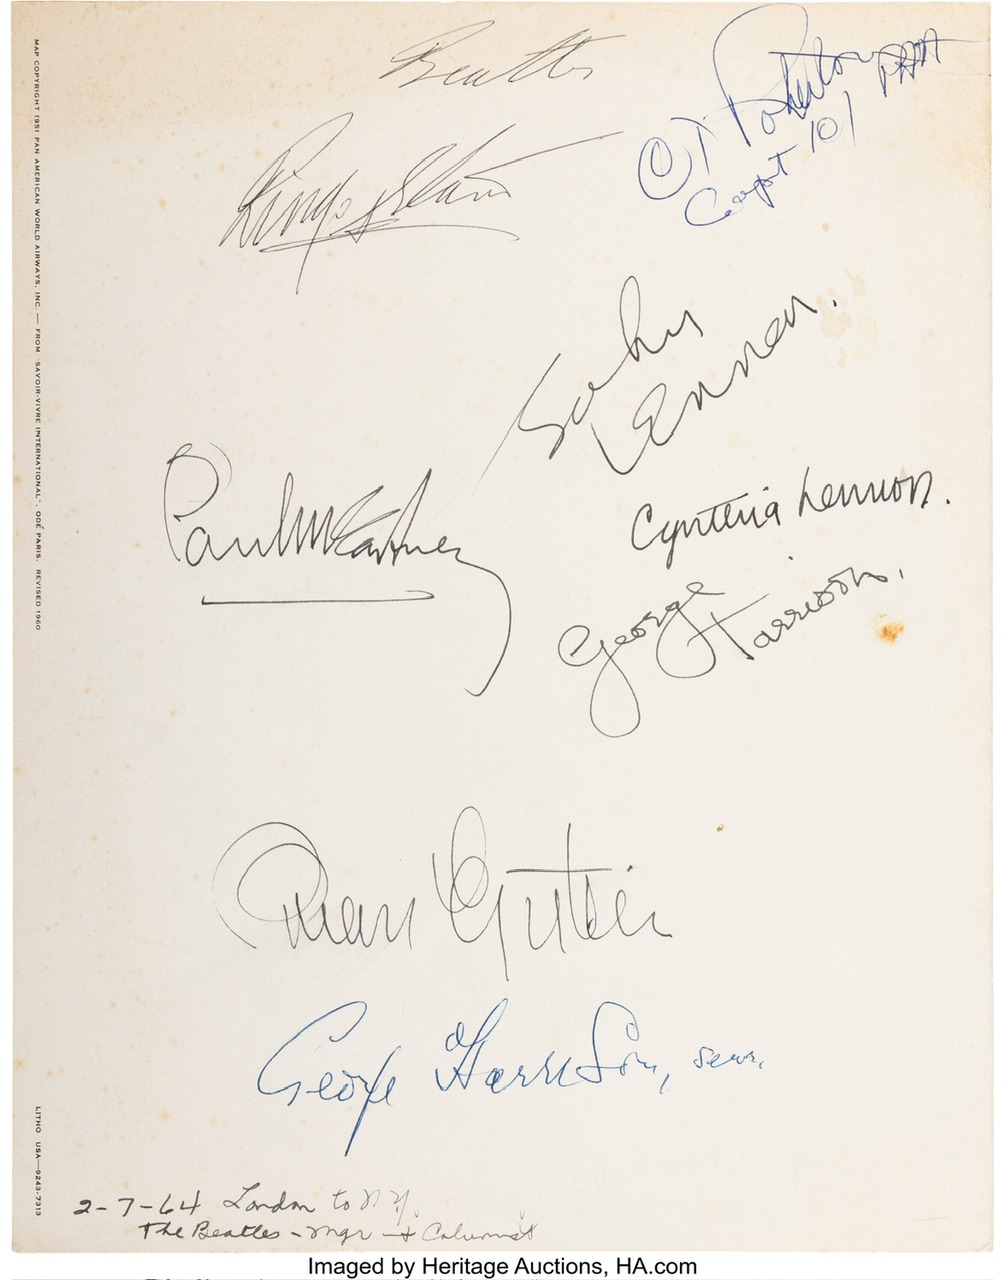 MAP COPYRIGHT 1951 PAN AMERICAN WORLD AIRWAYS, INC. — FROM "SAVOIR-VIVRE INTERNATIONAL", ODÉ PARIS. REVISED 1960
Beatles
Ringo Starr
Capt 101 PAA
John
Lennon.
Paul McCartney
Cynthia Lennon.
George
Harrison.
Brian Epstein
George Harrison, senr.
LITHO USA—9243-7313
2-7-64 London to N.Y.
The Beatles - mgr + Columnist
Imaged by Heritage Auctions, HA.com